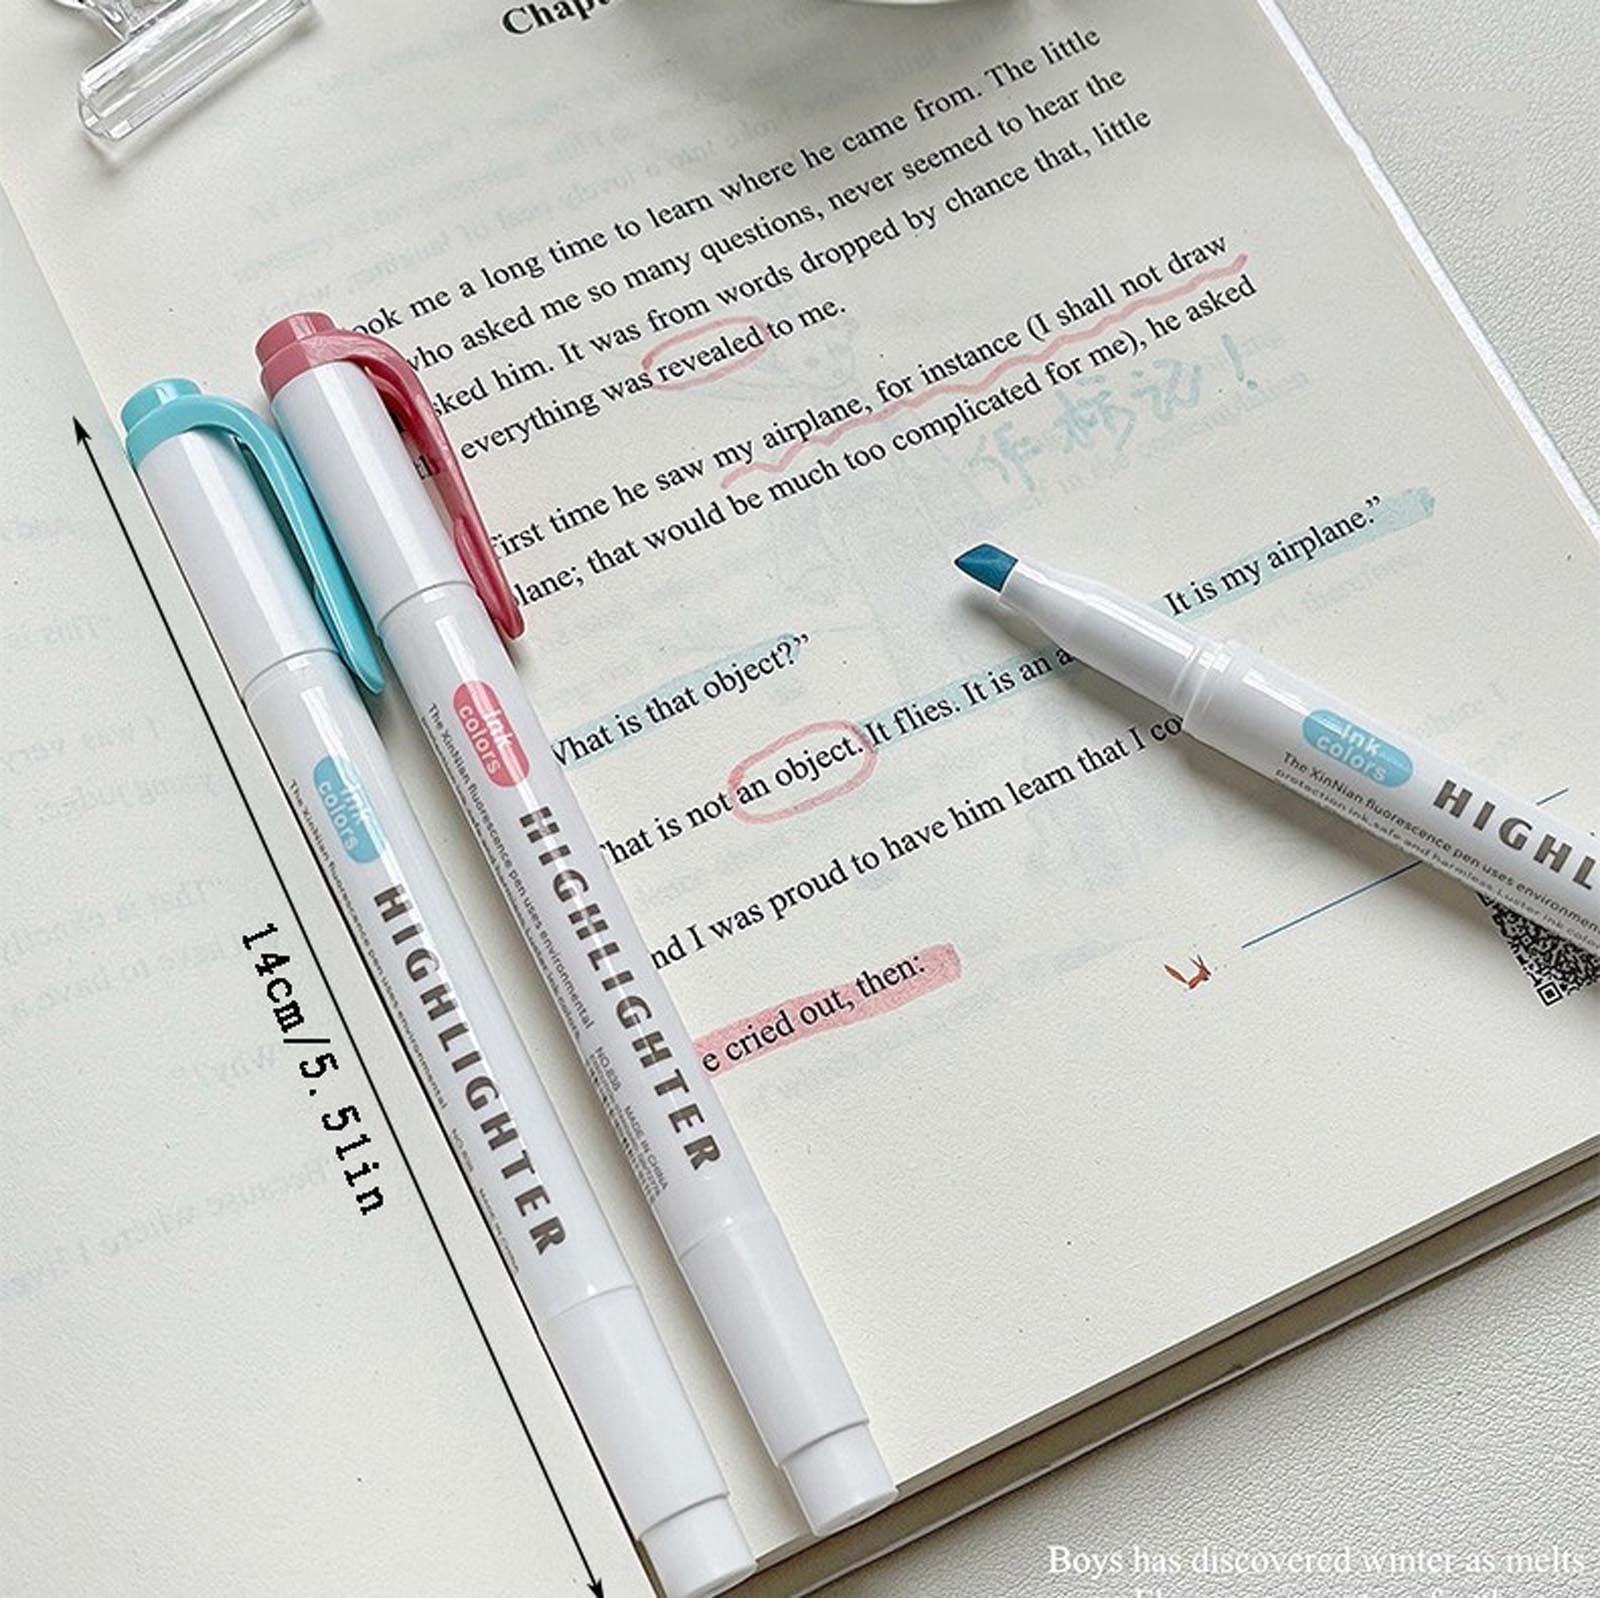 Chapt
ook me a long time to learn where he came from. The little
who asked me so many questions, never seemed to hear the
sked him. It was from words dropped by chance that, little
th everything was revealed to me.
first time he saw my airplane, for instance (I shall not draw
plane; that would be much too complicated for me), he asked
作标记!
What is that object?”
That is not an object. It flies. It is an a
It is my airplane.”
nd I was proud to have him learn that I co
e cried out, then:
ink
colors
HIGHLIGHTER
The XinNian fluorescence pen uses environmental
NO.838 MADE IN CHINA
ink
colors
HIGHLIGHTER
The XinNian fluorescence pen uses environmental
NO.838 MADE IN CHINA
ink
colors
HIGHL
The XinNian fluorescence pen uses environmen
protection ink, safe and harmless. Luster ink color
14cm/5.51in
Boys has discovered winter as melts